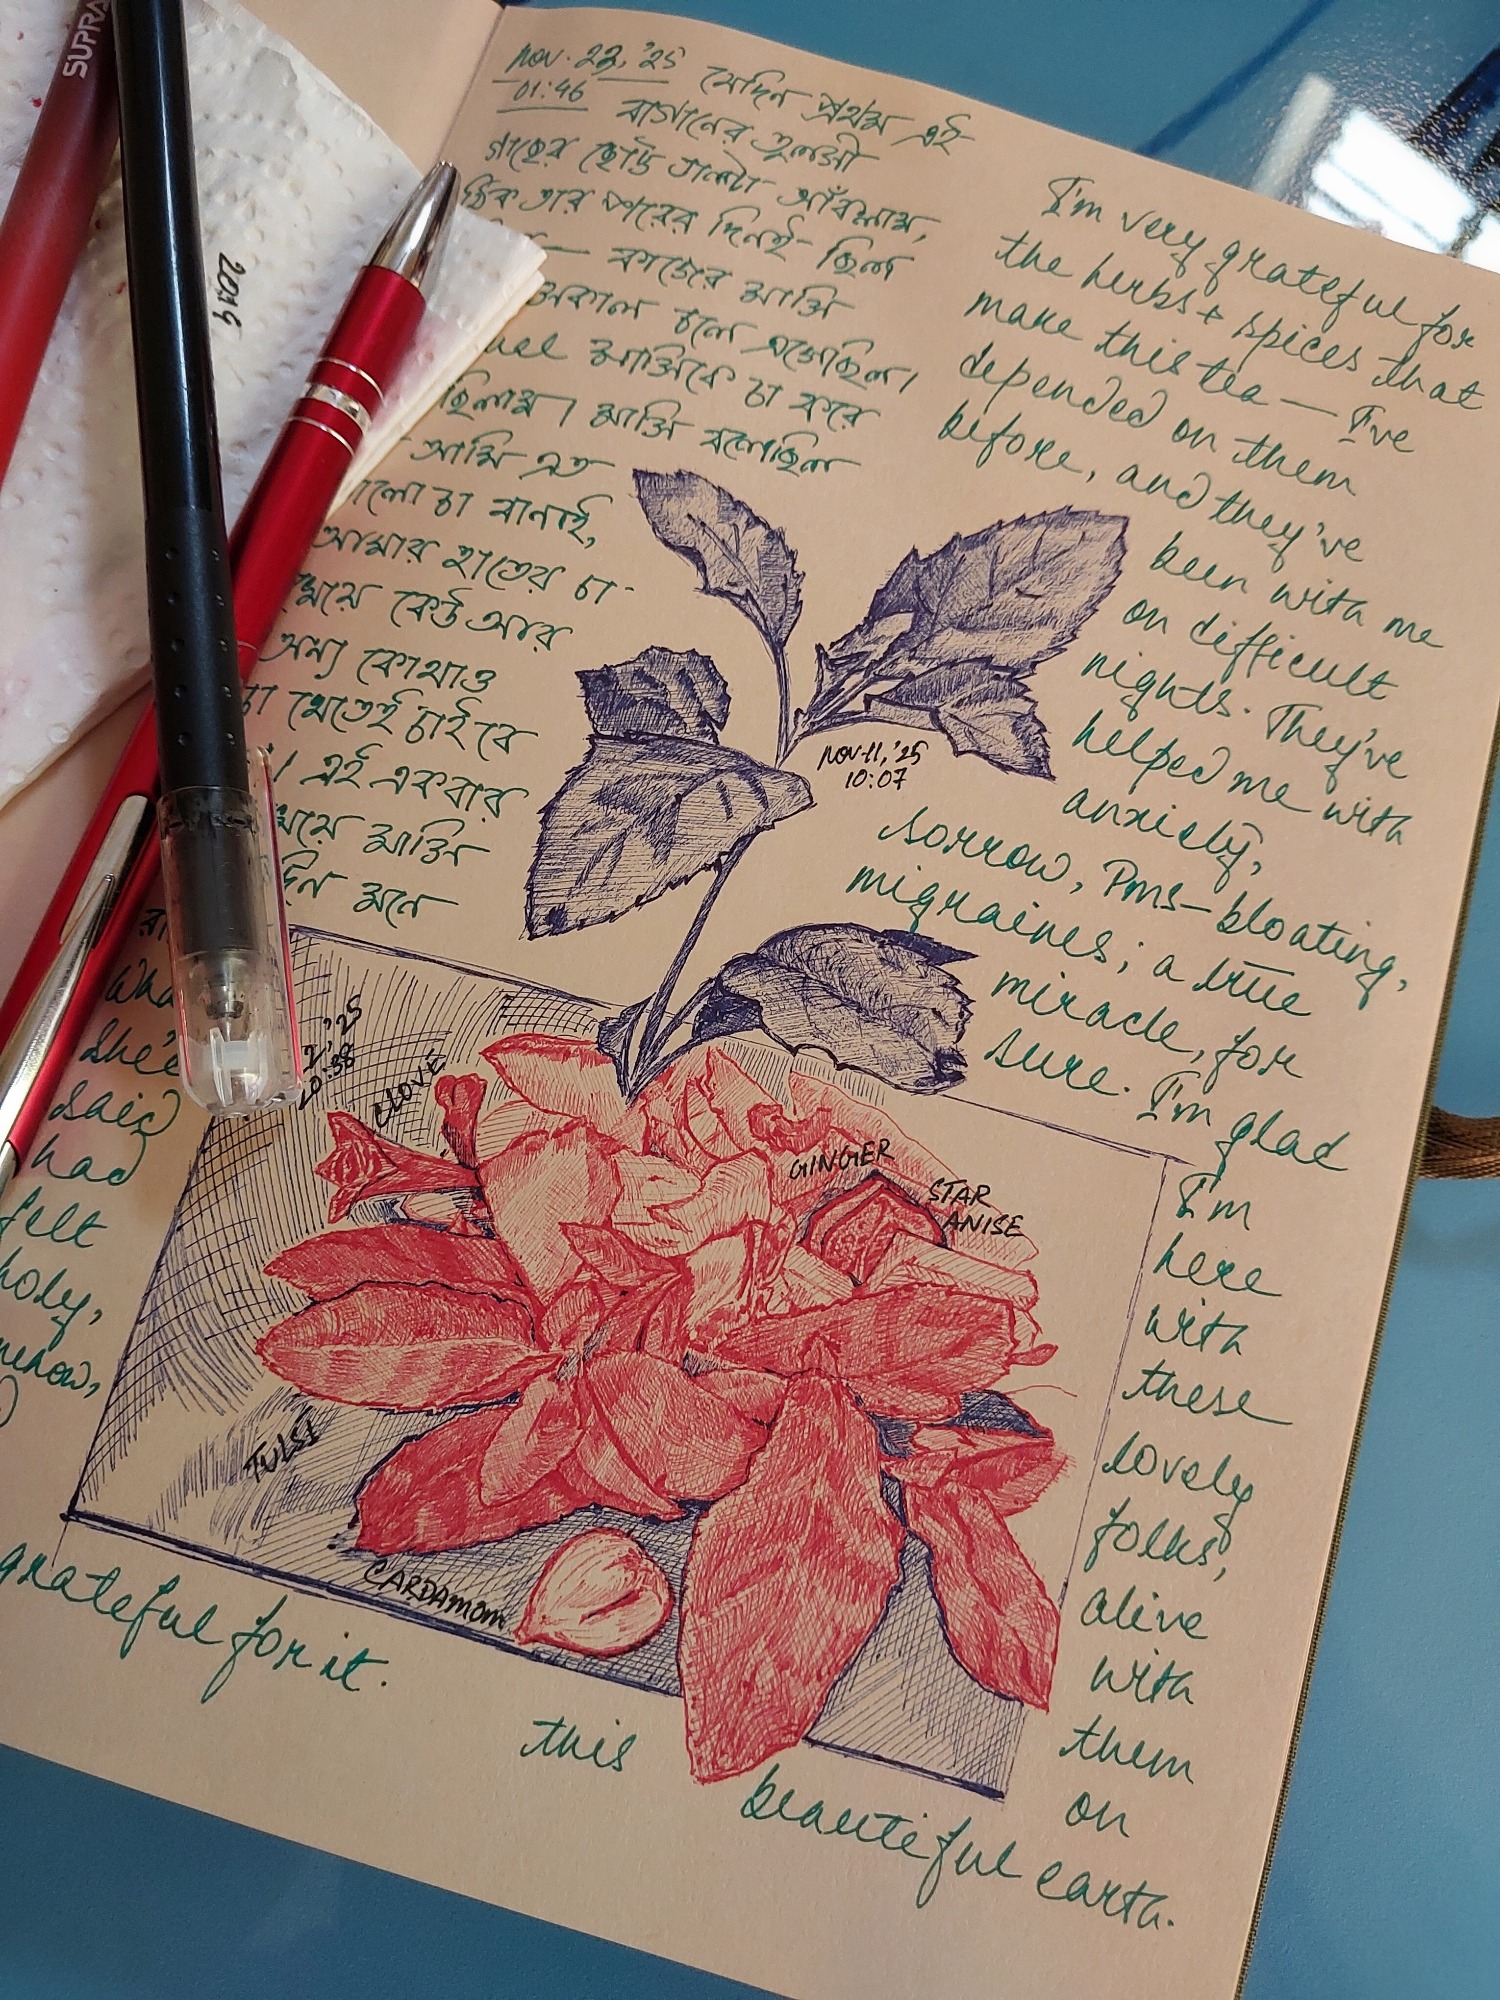 SUPRA
2019
Nov. 22, '25
01:46
যেদিন প্রথম এই
বাগানের তুলসী
গাছের ছোট্ট ডালটা আঁকলাম,
ঠিক তার পরের দিনই ছিল
— কাজের মাসি
সকাল চলে এসেছিল।
মাসিকে চা করে
মাসি বলেছিল
আমি এত
ভালো চা বানাই,
আমার হাতের চা
খেয়ে কেউ আর
অন্য কোথাও
চা খেতেই চাইবে
এই একবার
খেয়ে মাসির
মনে
she's
said
had
felt
holy,
grateful for it.
I'm very grateful for
the herbs + spices that
make this tea — I've
depended on them
before, and they've
been with me
on difficult
nights. They've
helped me with
anxiety,
sorrow, PMS-bloating,
migraines; a true
miracle, for
sure. I'm glad
I'm
here
with
these
lovely
folks,
alive
with
them
on
this
beautiful earth.
Nov 11, '25
10:07
'25
20:38
CLOVE
GINGER
STAR
ANISE
TULSI
CARDAMOM